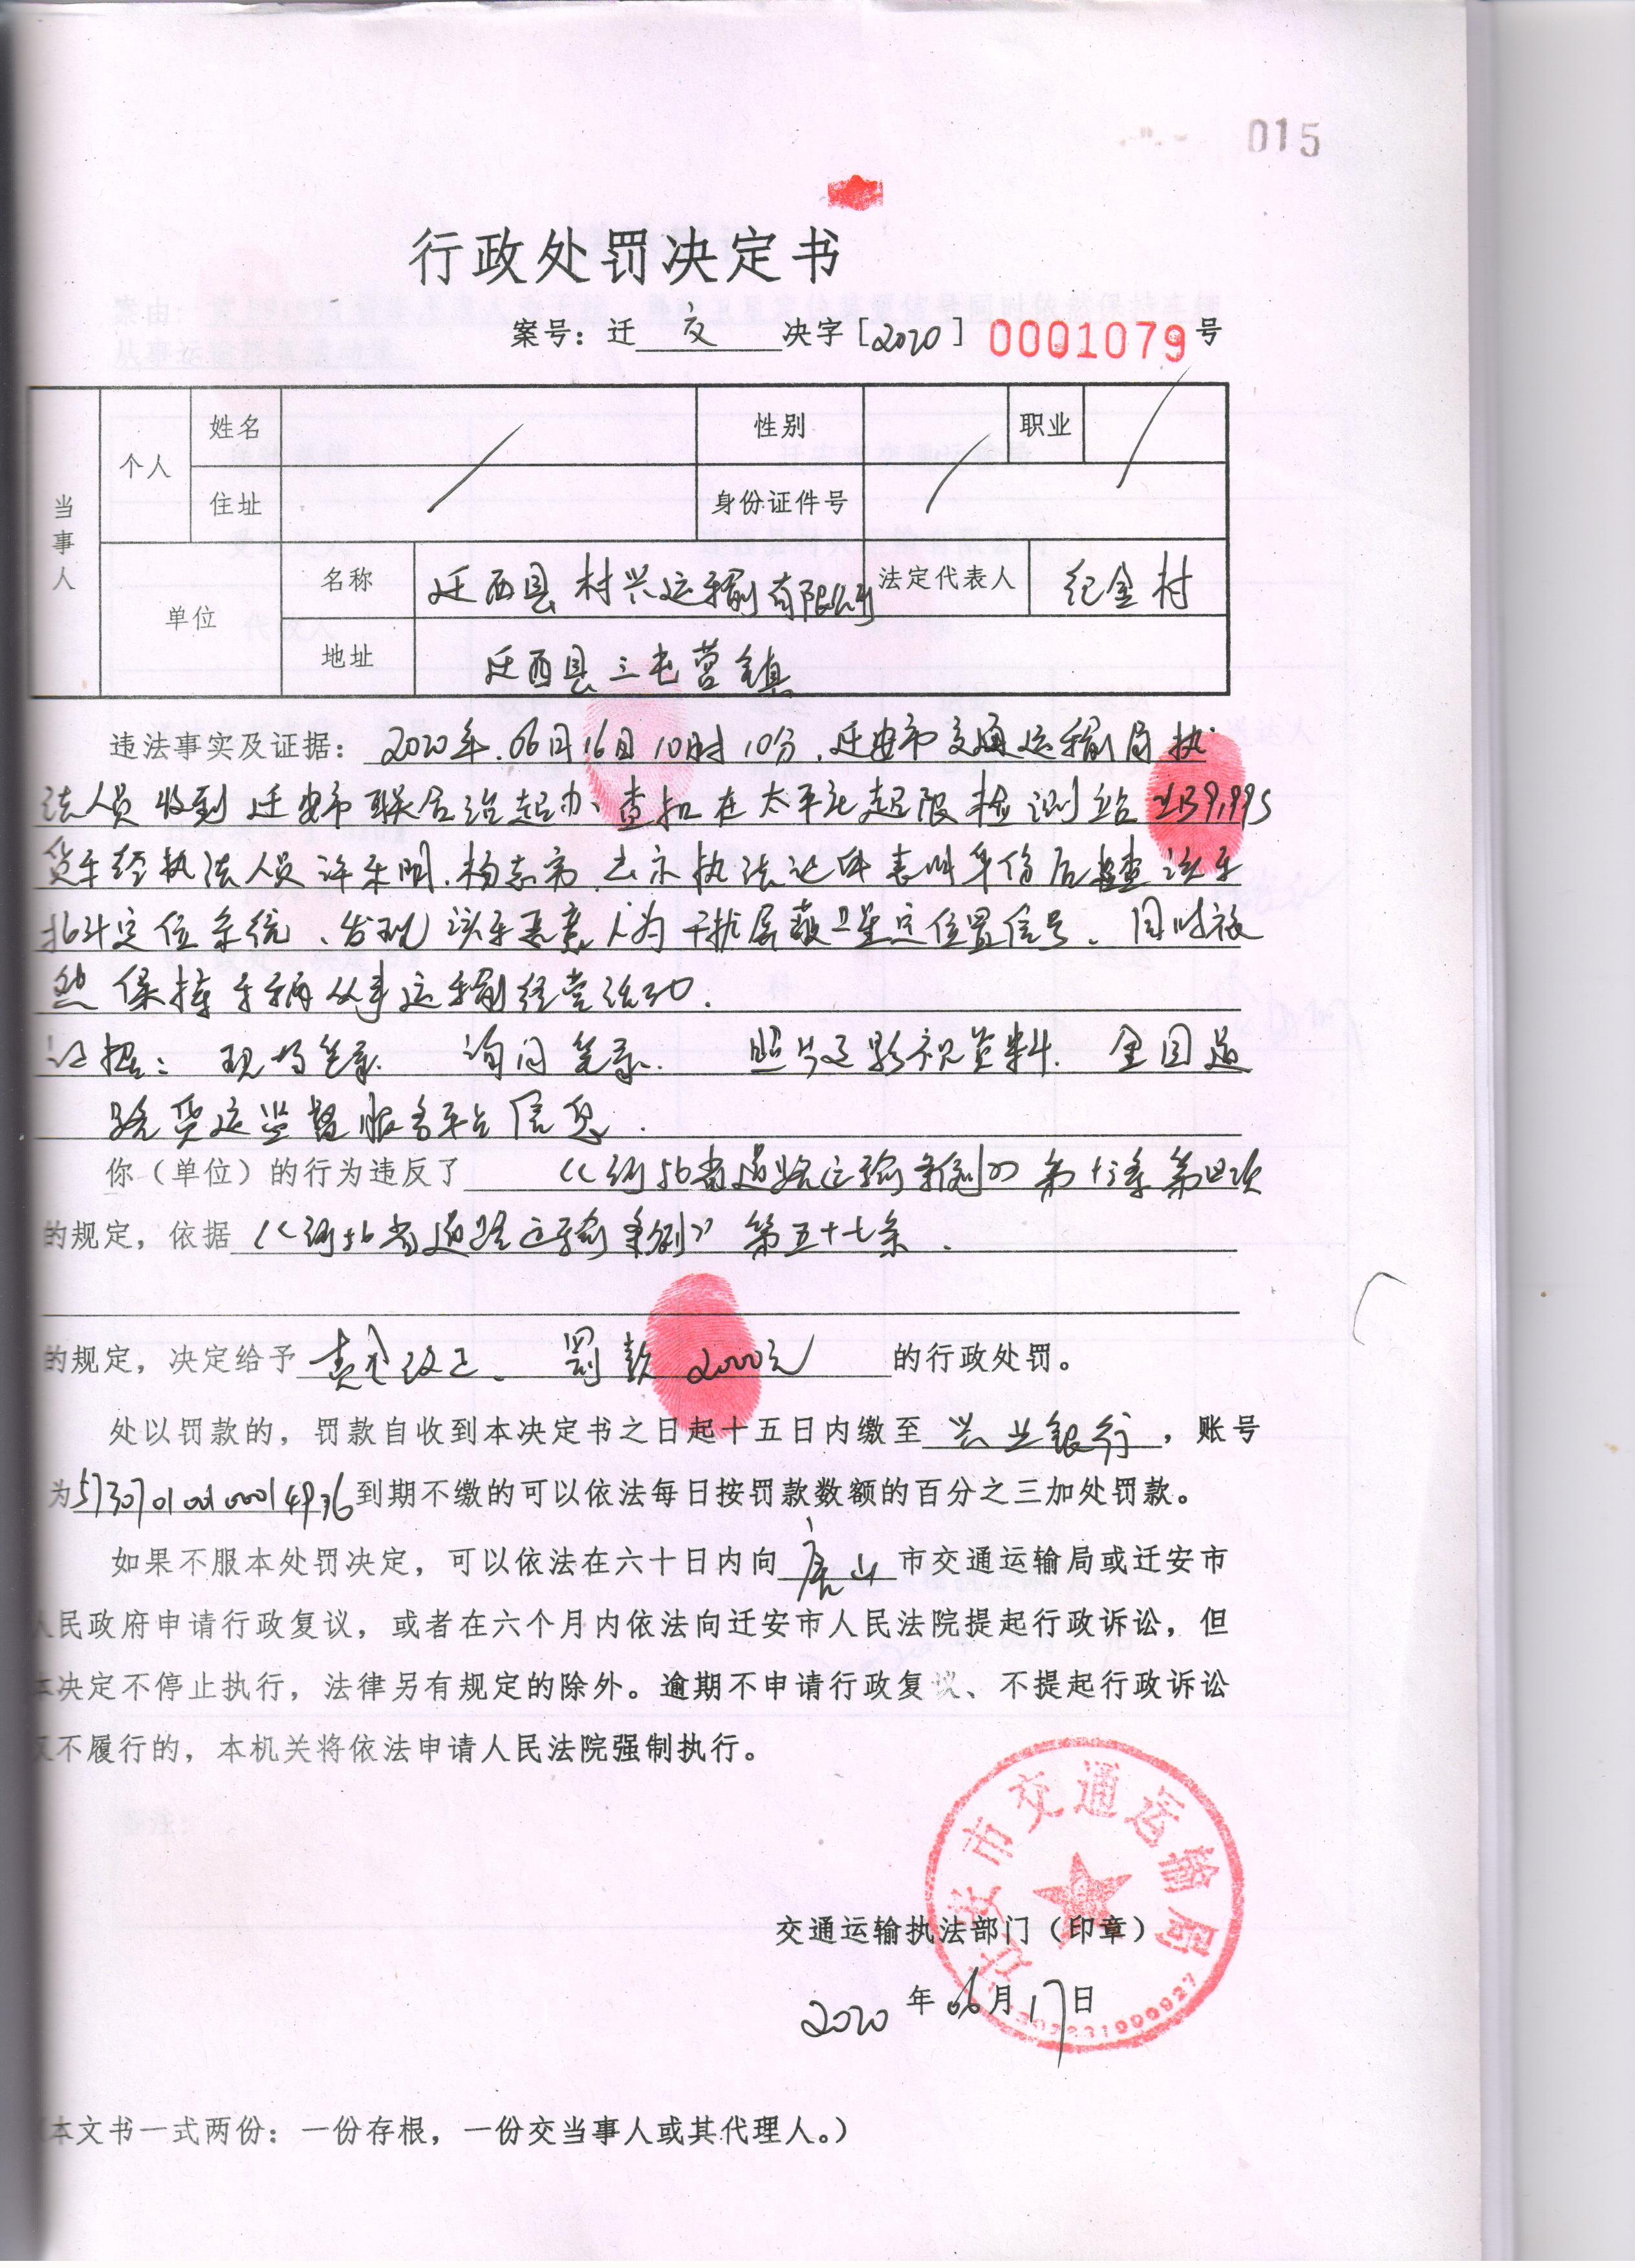 015
行政处罚决定书
案号：迁 交 决字［2020］0001079号
当事人
个人
姓名
性别
职业
住址
身份证件号
单位
名称 迁西县村兴运输有限公司
法定代表人 纪金村
地址 迁西县三屯营镇
违法事实及证据：2020年.06月16日10时10分，迁安市交通运输局执
法人员收到迁安市联合治超办、查扣在太平庄超限检测站
货车经执法人员许 明、杨志 、出示执法证件表明身份后检查该车
北斗定位系统、发现该车恶意人为干扰屏蔽卫星定位置信号、同时被
然保持车辆从事运输经营活动.
证据：现场笔录. 询问笔录. 照片及影视资料. 全国道
路货运监督服务平台信息.
你（单位）的行为违反了《河北省道路运输条例》第十三条第四项
的规定，依据《河北省道路运输条例》第五十七条.
的规定，决定给予责令改正、罚款2000元的行政处罚。
处以罚款的，罚款自收到本决定书之日起十五日内缴至兴业银行，账号
为 到期不缴的可以依法每日按罚款数额的百分之三加处罚款。
如果不服本处罚决定，可以依法在六十日内向唐山市交通运输局或迁安市
人民政府申请行政复议，或者在六个月内依法向迁安市人民法院提起行政诉讼，但
本决定不停止执行，法律另有规定的除外。逾期不申请行政复议、不提起行政诉讼
又不履行的，本机关将依法申请人民法院强制执行。
迁安市交通运输局
交通运输执法部门（印章）
2020年06月17日
（本文书一式两份：一份存根，一份交当事人或其代理人。）